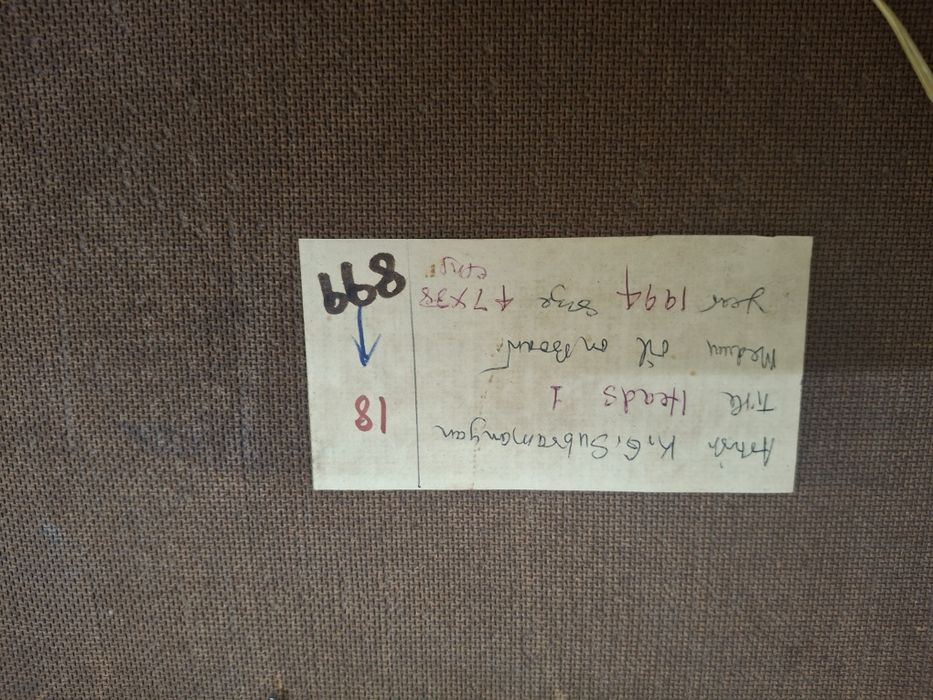 Artist K.G. Subramanyan
Title Heads 1
Medium Oil on Board
Year 1994 Size 47x38
18
899